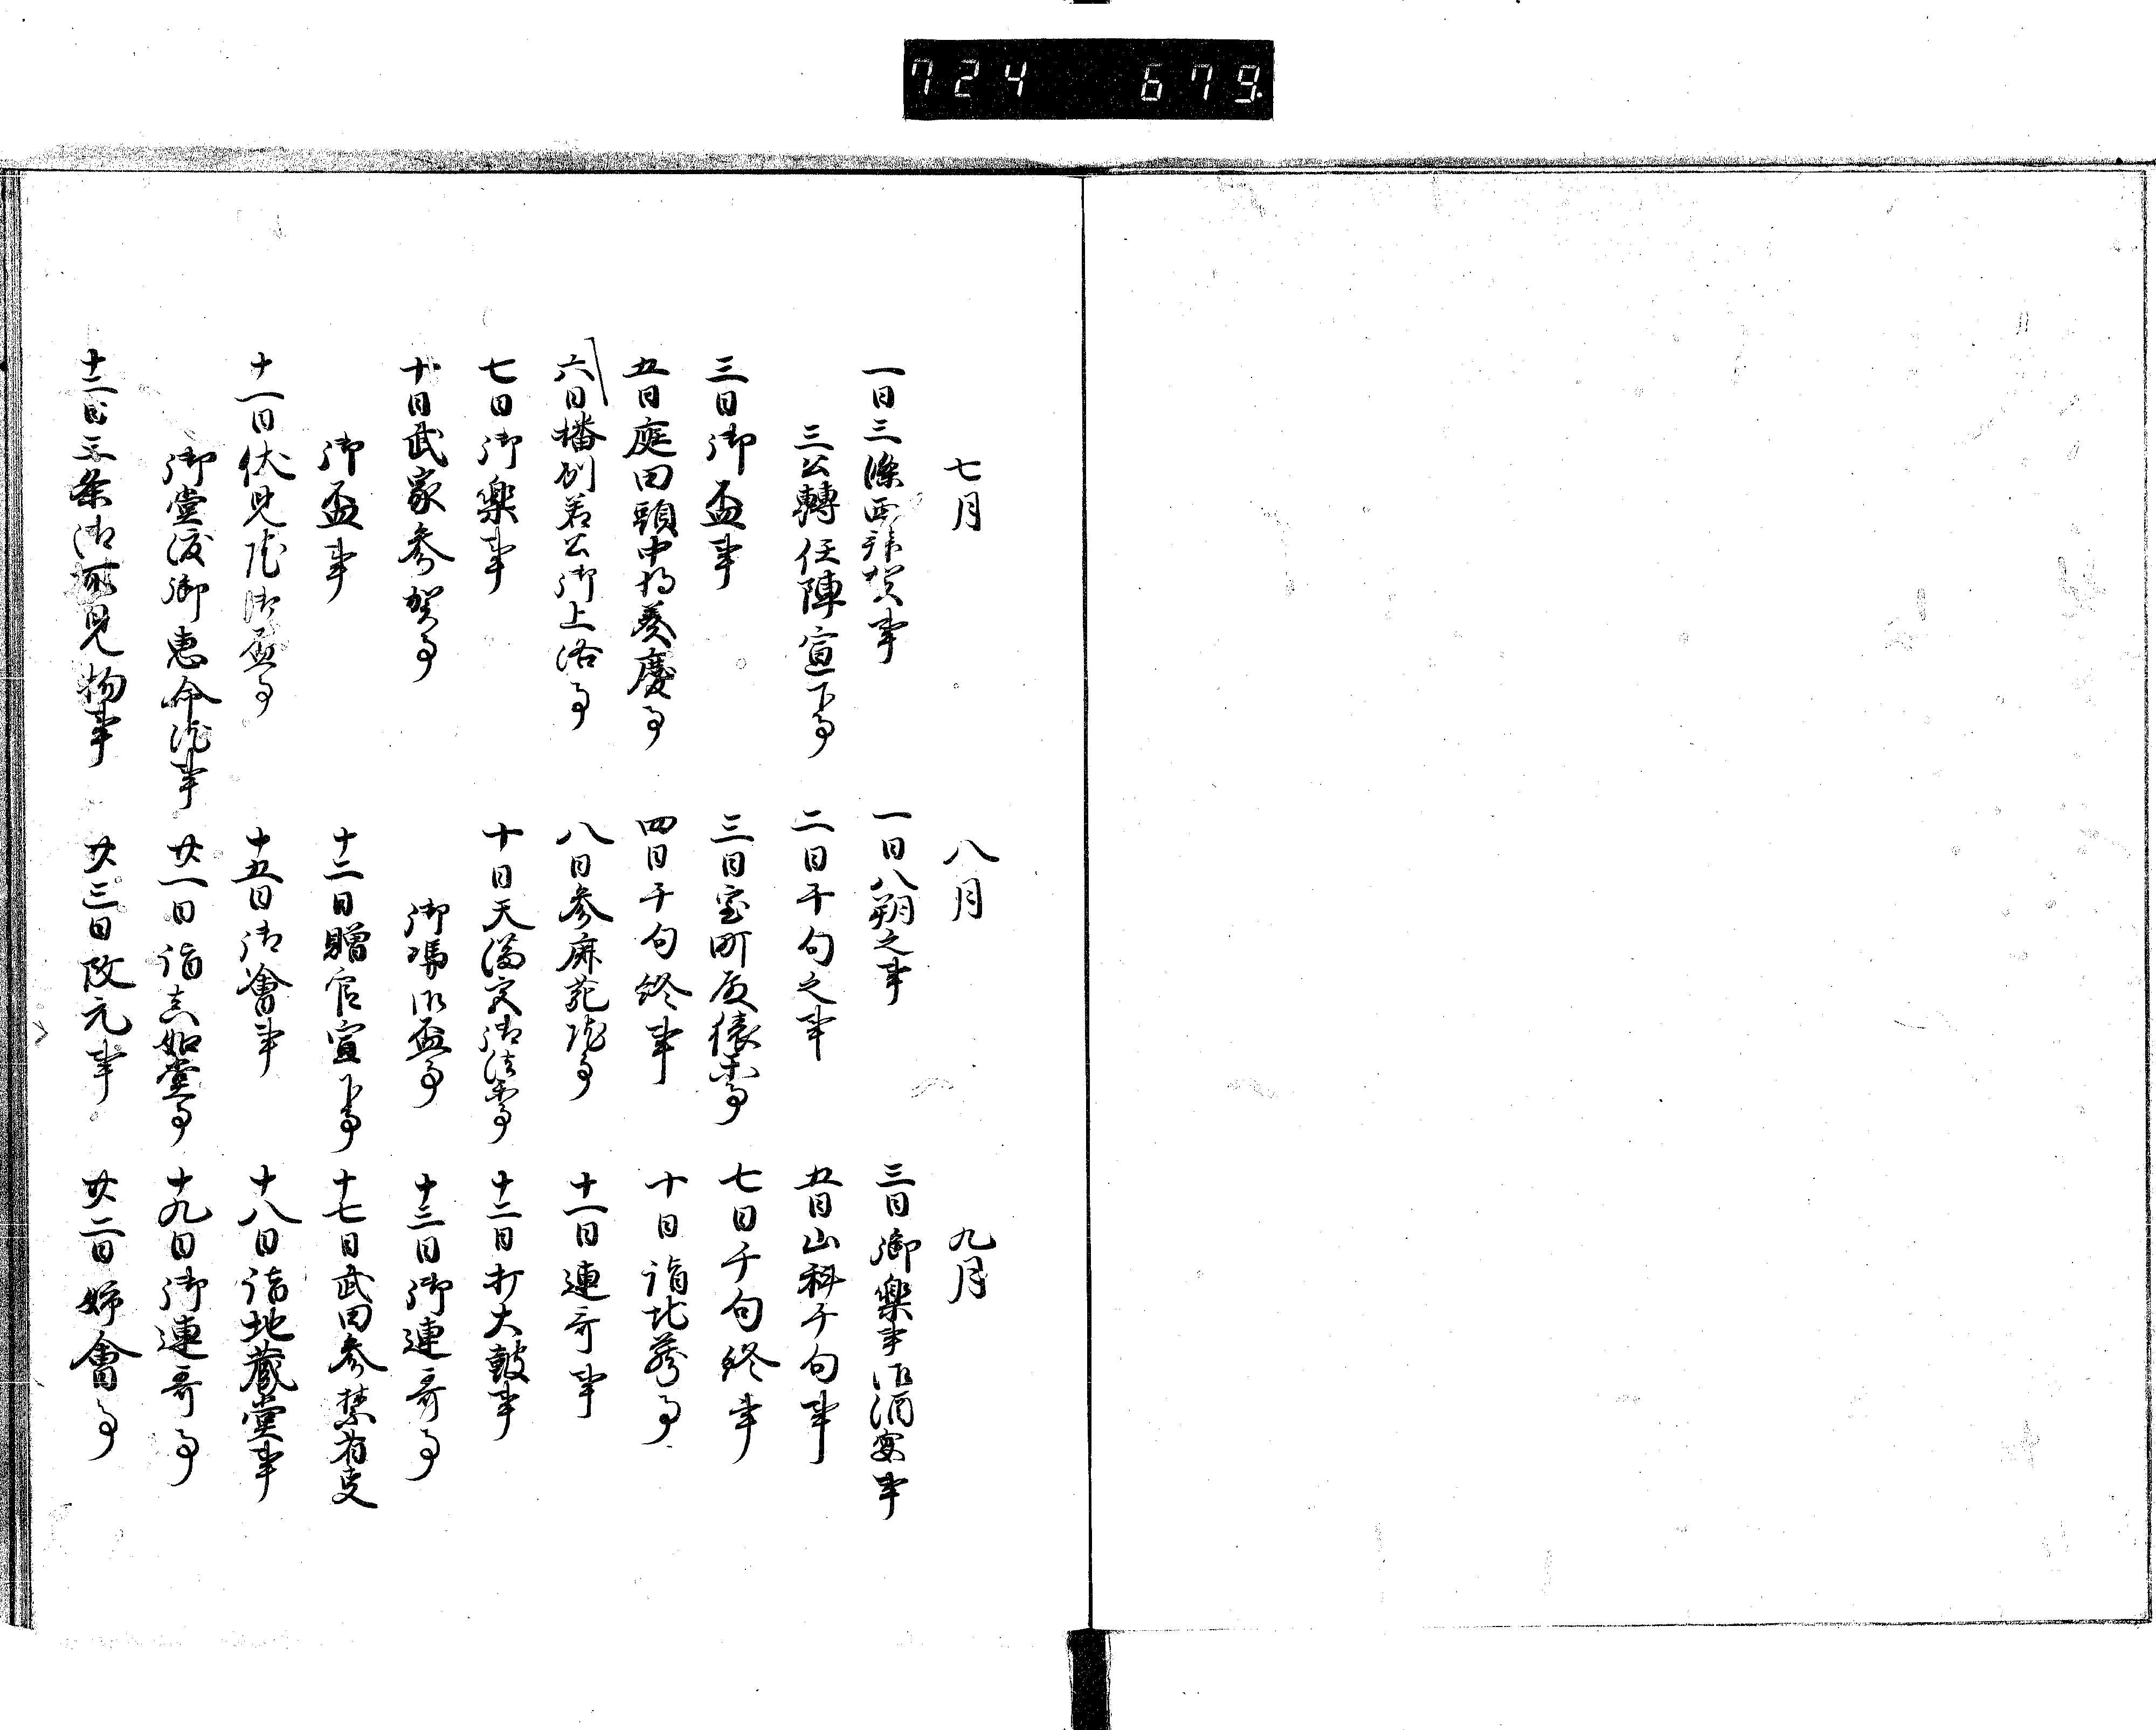 724 679
七月
一日三條西拝賀事
三公轉任陣宣下事
三日御盃事
五日庭田頭中将奏慶事
六日播州若公御上洛事
七日御楽事
十日武家参賀事
御盃事
十一日伏見殿御盃事
御堂渡御恵命院事
十二日三条御所見物事
八月
一日八朔之事
二日千句之事
三日室町殿
四日千句終事
八日参鹿苑院事
十日天満宮御法楽事
御盃事
十二日贈官宣下事
十五日御會事
廿一日詣真如堂事
廿三日改元事
九月
三日御樂事御酒宴事
五日山科千句事
七日千句終事
十日詣北
十一日連哥事
十二日打大鼓事
十三日御連哥事
十七日武田参禁
十八日詣地蔵堂事
十九日御連哥事
廿二日姉會事